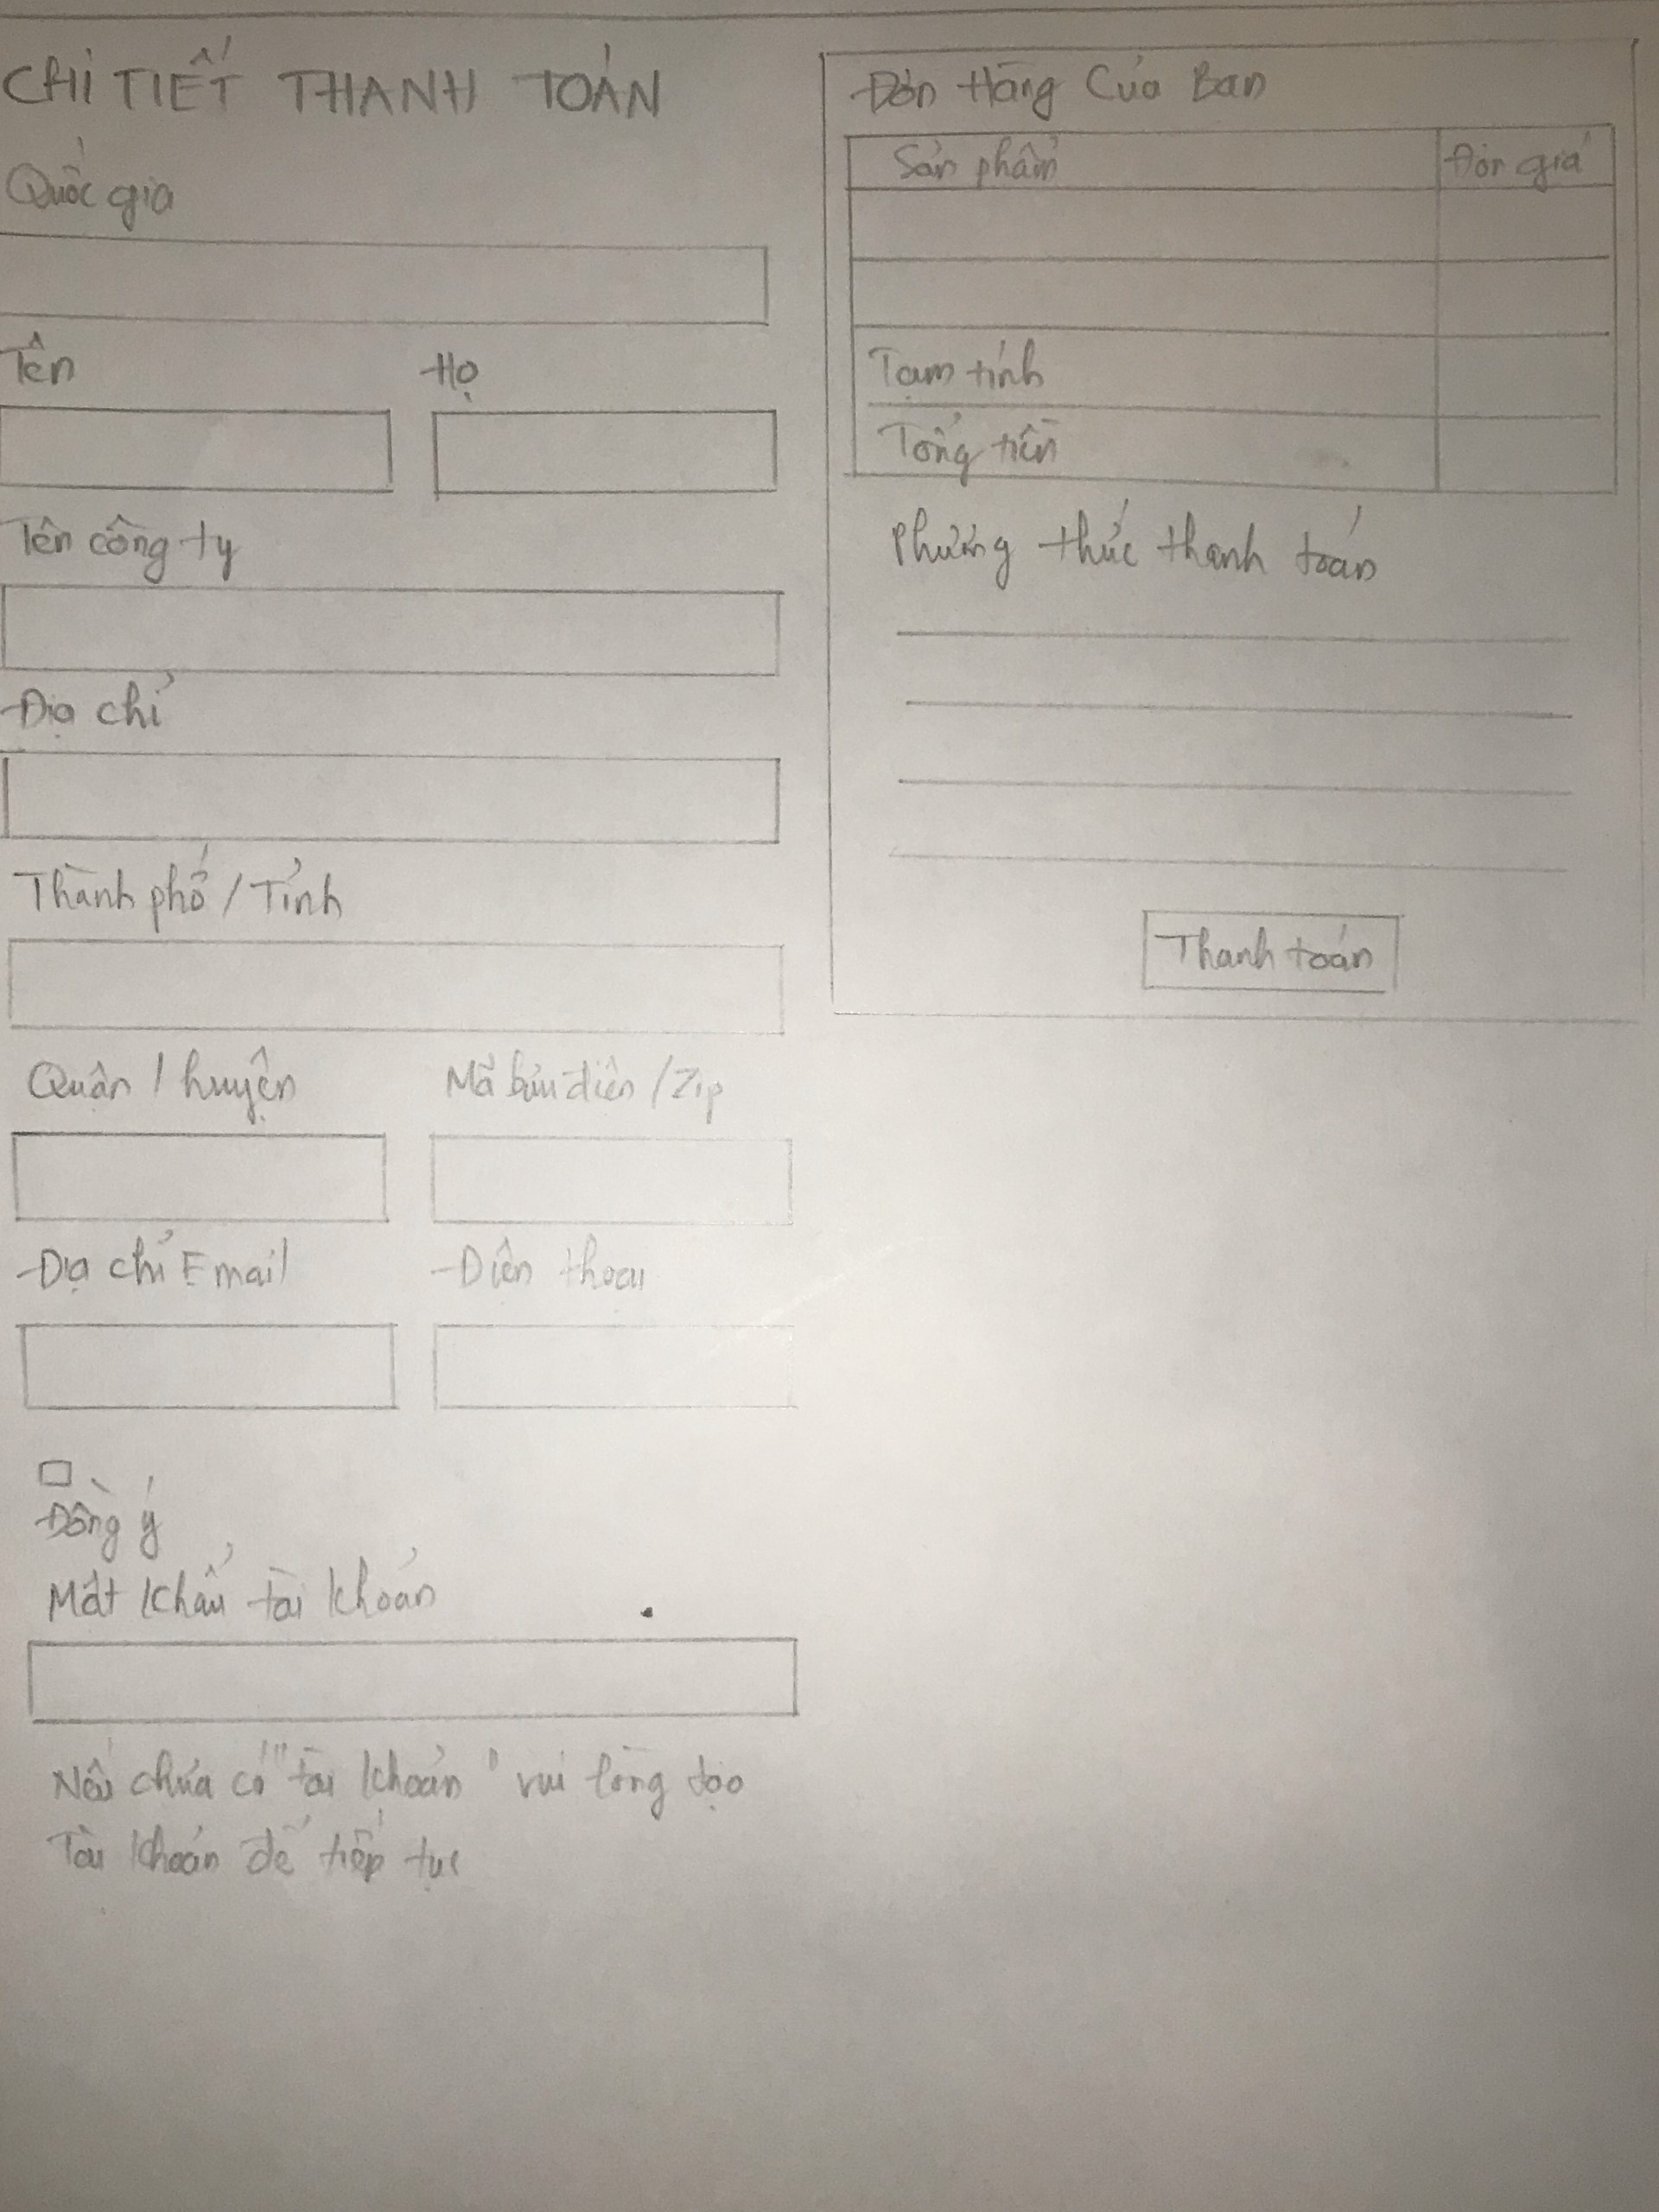 CHI TIẾT THANH TOÁN
Quốc gia
Tên
Họ
Tên công ty
Địa chỉ
Thành phố / Tỉnh
Quận / huyện
Mã bưu điện / Zip
Địa chỉ Email
Điện thoại
Đồng ý
Mật khẩu tài khoản
Nếu chưa có "tài khoản" vui lòng tạo
Tài khoản để tiếp tục
Đơn Hàng Của Bạn
Sản phẩm
Đơn giá
Tạm tính
Tổng tiền
Phương thức thanh toán
Thanh toán